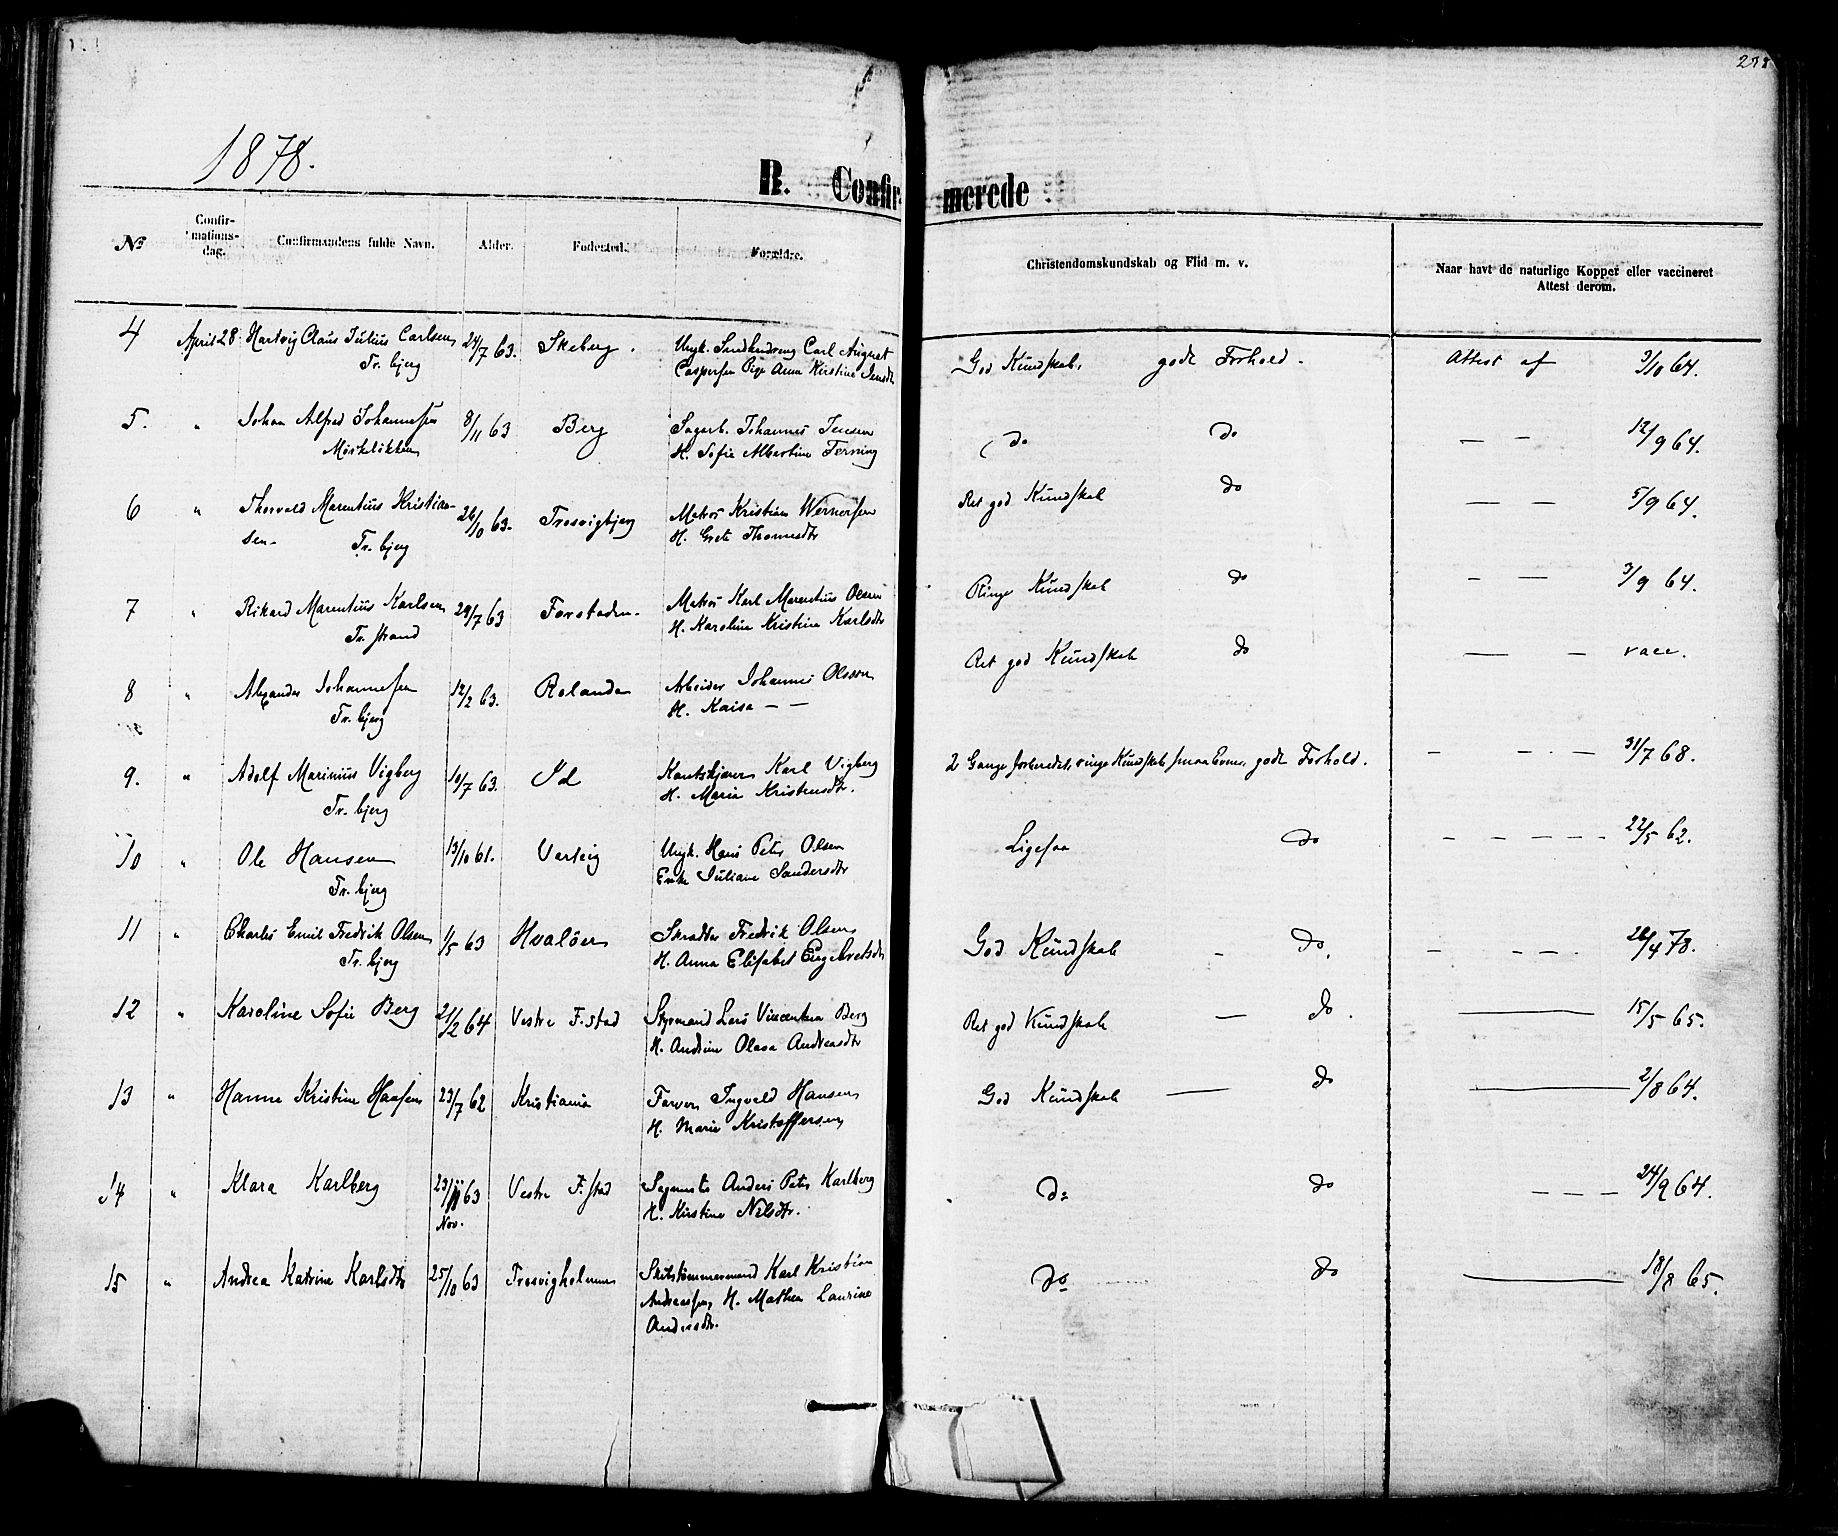 1878.
B. Confirmerede
№ Confirmationsdag. Confirmandens fulde Navn. Alder. Fødested. Forældre. Christendomskundskab og Flid m. v. Naar havt de naturlige Kopper eller vaccineret Attest derom.
4 April 28 Hartvig Claus Julius Carlsen 24/7 63. Skeberg. Ungk. Carl August God Kundskab, godt Forhold. Attest af 3/10 64.
Tr. bjerg Caspersen Pige Anna Kirstine Jensdtr
5. " Johan Alfred Johannesen 8/11 63 Berg Sagarb. Johannes Jensen do do — — 12/9 64.
H. Sofie Albertine Ferning
6 " Thorvald Marentius Kristian- 26/10 63. Trosvigbjerg Matros Kristian Wernersen Ret god Kundskab do — — 5/9 64.
sen- Tr. bjerg H. Grete Thomesdtr
7 " Rikard Marentius Karlsen 29/7 63 Forstaden- Matros Karl Marentius Olsen Ringe Kundskab do - — 3/9 64.
Tr. strand H. Karoline Kristine Karlsdtr
8 " Alexander Johannesen 12/2 63. Rolandsø Arbeider Johannes Olsson Ret god Kundskab do — — vacc.
Tr. bjerg H. Kaisa — —
9. " Adolf Marinius Vigberg 10/7 63. Id Karl Vigberg 2 Gange forberedet, ringe Kundskab smaa Evner, godt Forhold. — — — 31/7 68.
Tr. bjerg H. Maria Kristensdtr.
10 " Ole Hansen 13/10 61. Varteig Ungk. Hans Peter Olsen Ligesaa do — — — — — 22/5 62.
Tr. bjerg Enke Juliane Sandersdtr
11 " Charles Emil Fredrik Olsen 1/5 63 Hvaløer Skrædder Fredrik Olsen God Kundskab - do. — — — 26/4 78.
Tr. bjerg H. Anna Elisabet Engebretsdtr
12 " Karoline Sofie Berg 21/2 64 Vestre F.stad Styrmand Lars Vincentsen Berg Ret god Kundskab — do. — 15/5 65.
H. Andrine Olava Andreasdtr
13 " Hanna Kristine Hansen 23/7 62 Kristiania Farver Ingvald Hansen God Kundskab — do — 2/8 64.
H. Marie Kristoffersen
14 " Klara Karlberg 23/11 63 Vestre F.stad Sagmester Anders Peter Karlberg do do — — — 24/9 64.
Nov. H. Kirstine Nilsdtr.
15 " Andrea Katrine Karlsdtr 25/10 63 Trosvigholmen Skibstømmermand Karl Kristian do do — 18/8 65.
Andreassen, H. Mathea Laurine
Andersdtr.